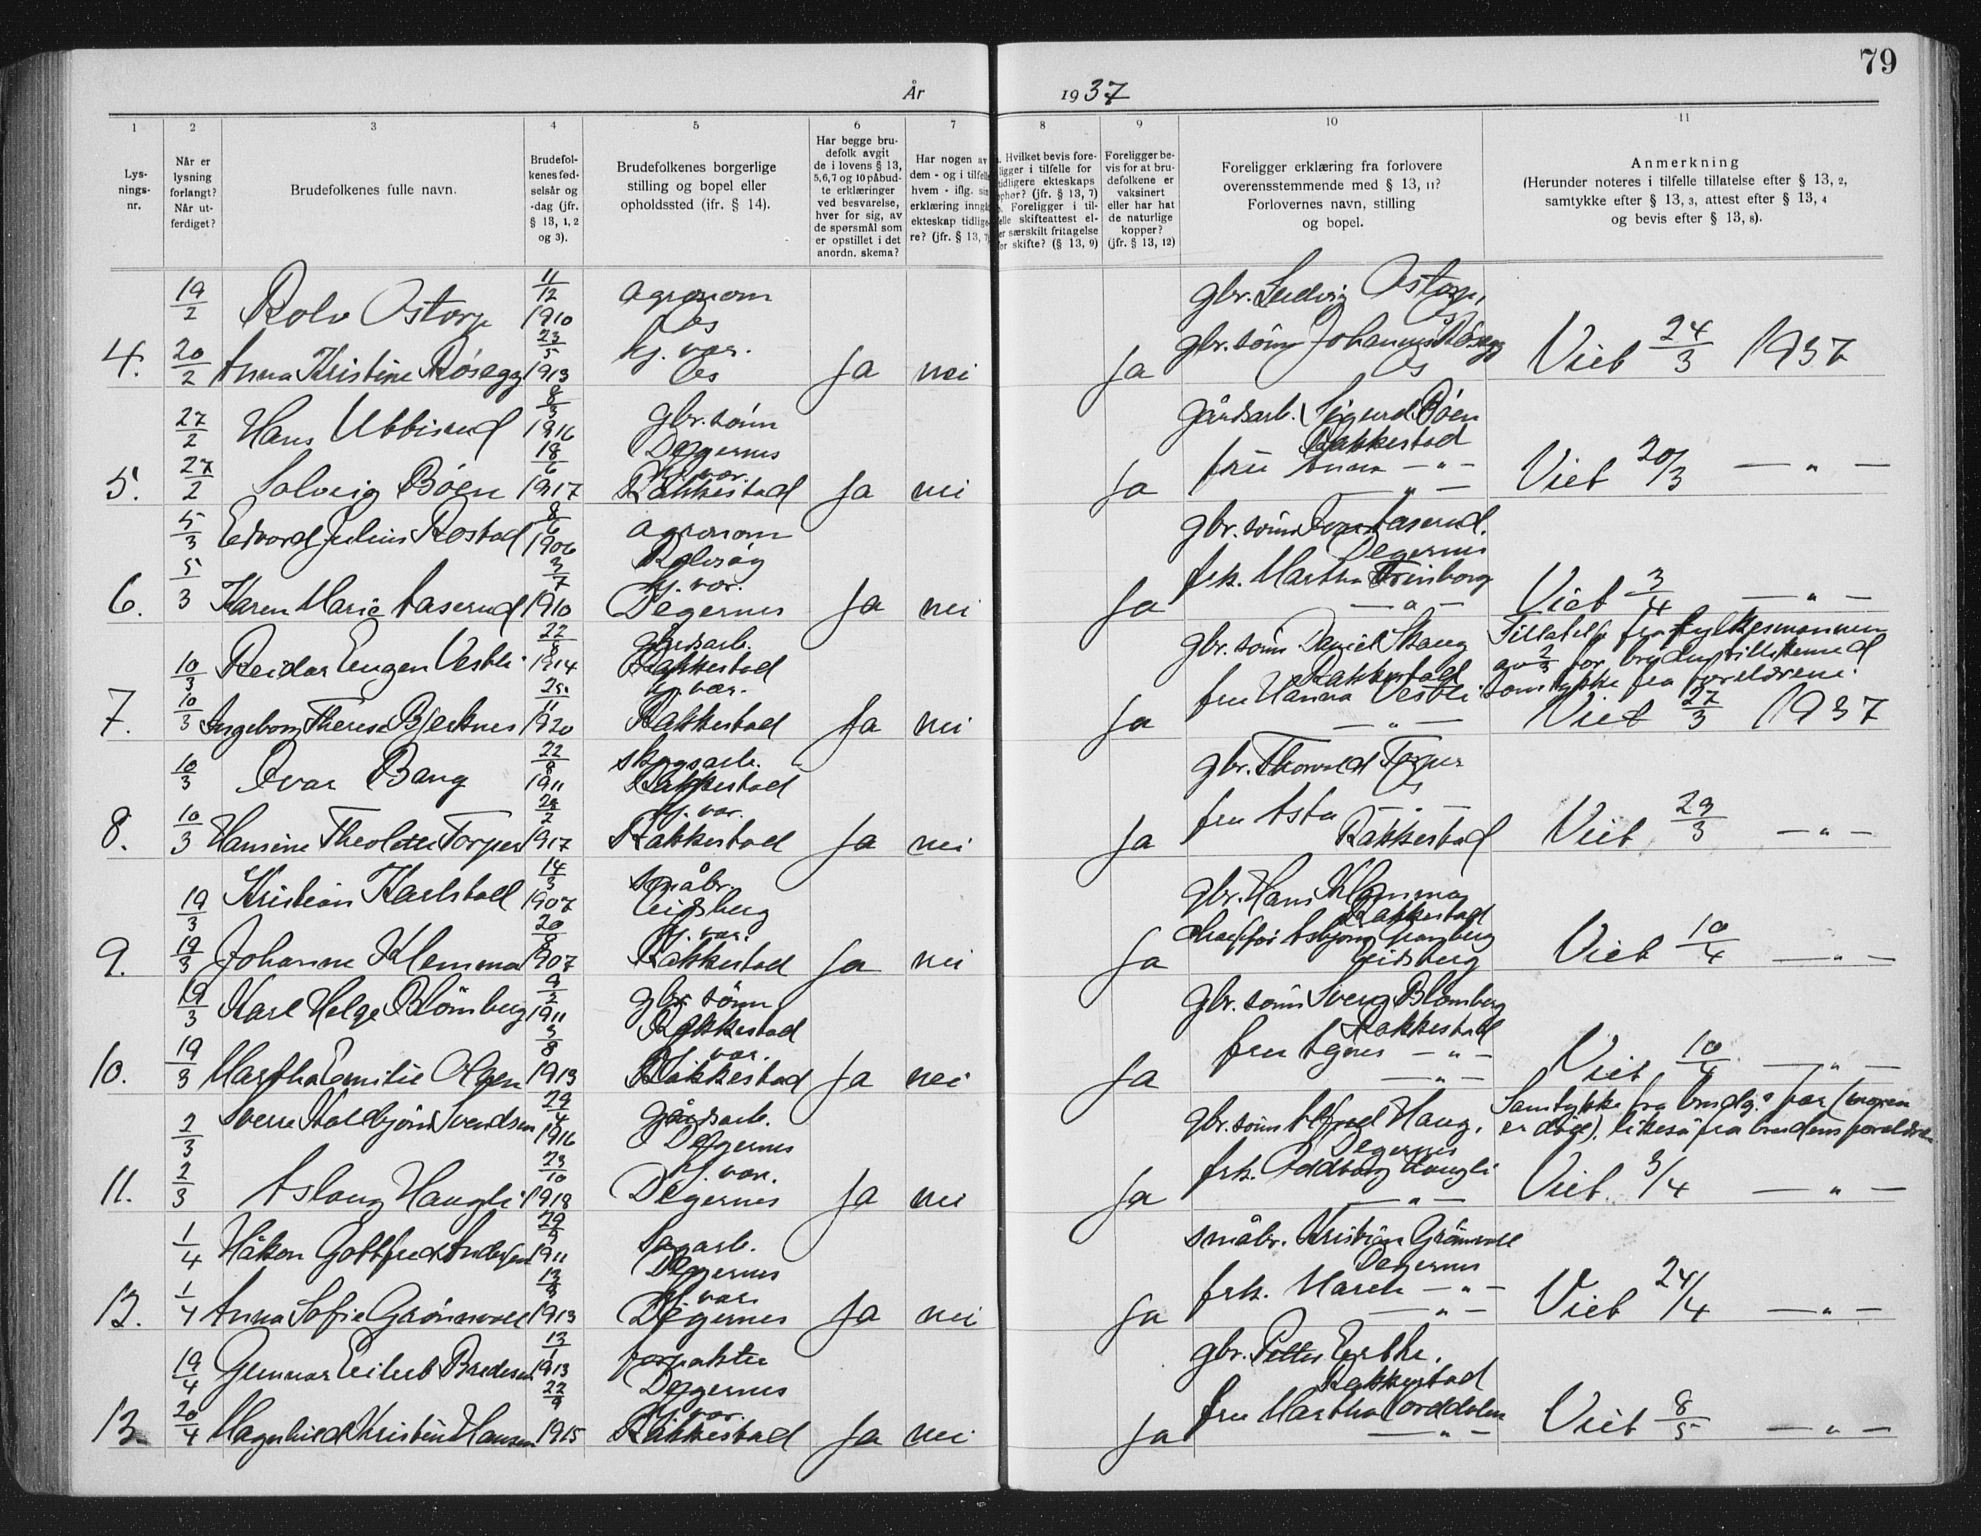 79
År 1937
1 2 3 4 5 6 7 8 9 10 11
Lys-
nings-
nr.
Når er
lysning
forlangt?
Når ut-
ferdiget?
Brudefolkenes fulle navn.
Brudefol-
kenes fød-
selsår og
-dag (jfr.
§ 13, 1, 2
og 3).
Brudefolkenes borgerlige
stilling og bopel eller
opholdssted (ifr. § 14).
Har begge bru-
defolk avgit
de i lovens § 13,
5,6,7 og 10 påbud-
te erklæringer
ved besvarelse,
hver for sig, av
de spørsmål som
er opstillet i det
anordn. skema?
Har nogen av
dem - og i tilfelle
hvem - iflg. sin
erklæring inngå
ekteskap tidlige-
re? (jfr. § 13, 7
Hvilket bevis fore-
ligger i tilfelle for
tidligere ekteskaps
ophør? (jfr. § 13, 7)
Foreligger i til-
felle skifteattest el-
er særskilt fritagelse
for skifte? (§ 13, 9)
Foreligger be-
vis for at bru-
defolkene er
vaksinert
eller har hat
de naturlige
kopper?
(jfr. § 13, 12)
Foreligger erklæring fra forlovere
overensstemmende med § 13, 11?
Forlovernes navn, stilling
og bopel.
Anmerkning
(Herunder noteres i tilfelle tillatelse efter § 13, 2,
samtykke efter § 13, 3, attest efter § 13, 4
og bevis efter § 13, 8).
19/2 Rolv Ostorp 11/12 1910 agronom Os gbr. Ludvig Ostorp,
4. 20/2 Anna Kristine Røsegg 23/5 1913 hj. vær. Os Ja nei Ja gbr. sønn Johannes Røsegg Os Viet 24/3 1937
27/2 Hans Ubbisrud 8/3 1916 gbr. sønn Degernes gårdsarb. Sigurd Bøen Rakkestad
5. 27/2 Solveig Bøen 18/6 1917 hj. vær. Rakkestad Ja nei Ja fru Anna — " — Viet 20/3 — " —
5/3 Edvard Julius Rostad 8/6 1906 agronom Rolvsøy gbr. sønn Aaserud. Degernes
6. 5/3 Karen Marie Aaserud 3/7 1910 hj. vær. Degernes Ja nei Ja frk. Martha — " — Viet 3/4 — " —
10/3 Reidar Eugen Vestli 22/8 1914 gårdsarb. Rakkestad gbr. sønn Daniel Skaug Rakkestad Tillatelse fra fylkesmannen
av 2/3 for bruden tillikemed
samtykke fra foreldrene.
7. 10/3 Ingeborg Therese Bjerknes 25/11 1920 hj. vær. Rakkestad Ja nei Ja fru Hanna Vestli — " — Viet 27/3 1937
10/3 Ivar Bang 22/8 1911 skogsarb. Rakkestad gbr. Thorvald Torper
8. 10/3 Hansine Theoline Torper 28/2 1917 hj. vær. Rakkestad Ja nei Ja fru Asta — " — Rakkestad Viet 29/3 — " —
19/3 Kristian Karlstad 14/3 1907 småbr. Eidsberg gbr. Hans Klemma Rakkestad
9. 19/3 Johanne Klemma 20/8 1907 hj. vær. Rakkestad Ja nei Ja chauffør Asbjørn Eidsberg Viet 10/4 — " —
19/3 Karl Helge Blomberg 9/2 1911 gbr. sønn Rakkestad gbr. sønn Sverg Blomberg Rakkestad
10. 19/3 Martha Emilie Olsen 3/8 1913 hj. vær. Rakkestad Ja nei Ja fru Agnes — " — Viet 10/4 — " —
2/3 Sverre Svendsen 29/4 1916 gårdsarb. Degernes gbr. sønn Alfred Haug. Degernes Samtykke fra brudg.s far (moren
er død), likeså fra brudens foreldre
11. 2/3 Aslaug Haugli 23/10 1918 hj. vær. Degernes Ja nei Ja frk. Oddborg Haugli — " — Viet 3/4 — " —
1/4 Håkon Gottfred Andersen 29/9 1911 sagarb. Degernes småbr. Kristian Grønvoll Degernes
12. 1/4 Anna Sofie Grønnvoll 13/8 1913 hj. vær. Degernes Ja nei Ja frk. Mareh — " — Viet 24/4 — " —
19/4 Gunnar Eilert Bredesen 13/1 1913 forpakter Degernes gbr. Petter Ertke. Rakkestad
13. 20/4 Magnhild Kristine Hansen 22/9 1915 hj. vær. Rakkestad Ja nei Ja fru Martha — " — Viet 8/5 — " —